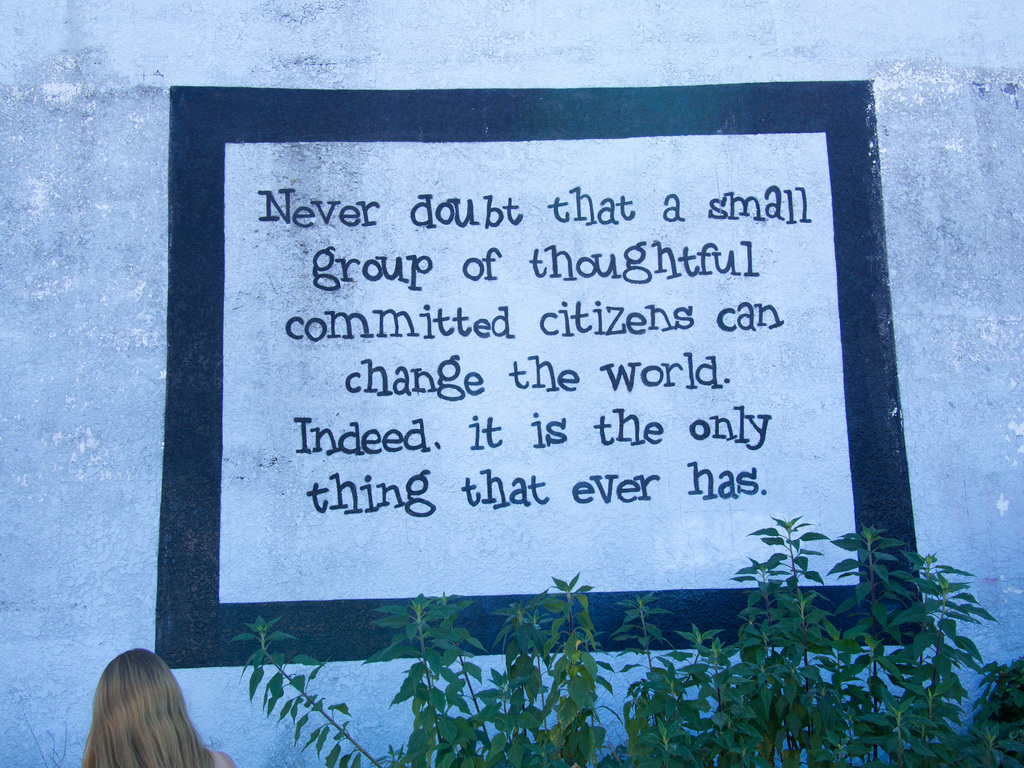 Never doubt that a small
group of thoughtful
committed citizens can
change the world.
Indeed, it is the only
thing that ever has.